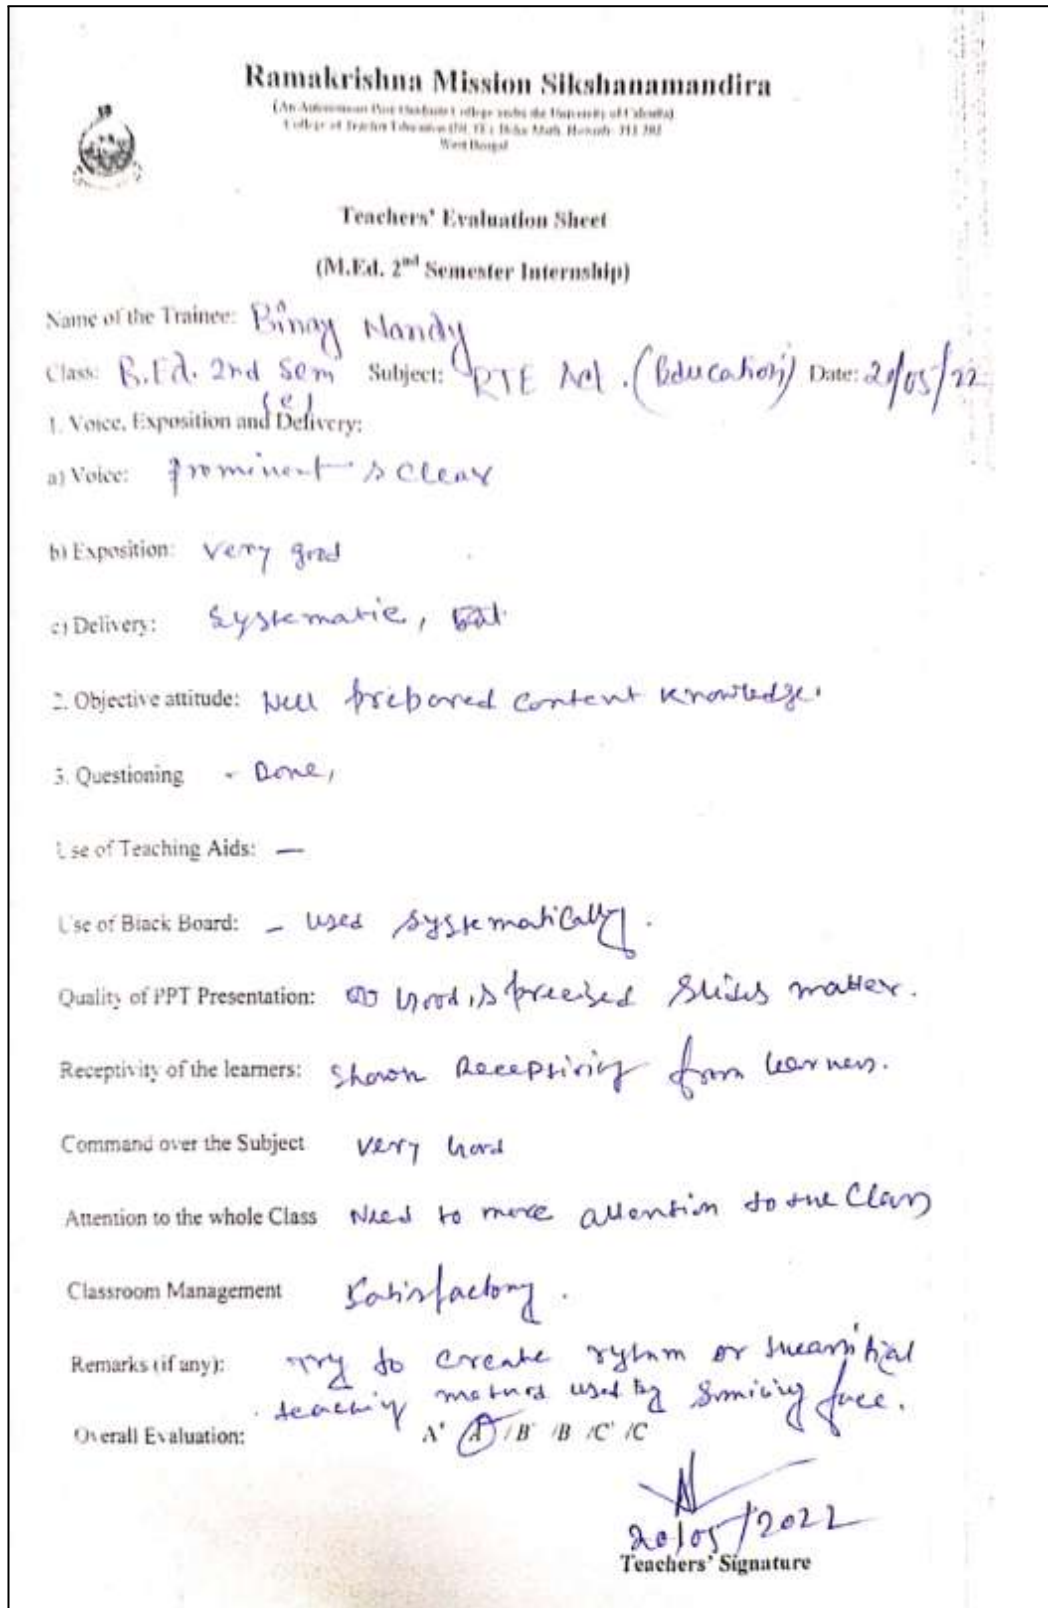 Ramakrishna Mission Sikshanamandira
(An Autonomous Post Graduate College under the University of Calcutta)
College of Teacher Education (CTE), Belur Math, Howrah-711 202
West Bengal
Teachers' Evaluation Sheet
(M.Ed. 2nd Semester Internship)
Name of the Trainee: Binay Nandy
Class: B.Ed. 2nd Sem Subject: RTE Act. (Education) Date: 20/05/22
(e)
1. Voice, Exposition and Delivery:
a) Voice: Prominent & Clear
b) Exposition: Very good
c) Delivery: Systematic,
2. Objective attitude: Well prepared content knowledge.
3. Questioning - Done,
Use of Teaching Aids: —
Use of Black Board: - used systematically.
Quality of PPT Presentation: Good, & precised slides matter.
Receptivity of the learners: Shown Receptivity from learners.
Command over the Subject Very Good
Attention to the whole Class Need to more attention to the Class
Classroom Management Satisfactory.
Remarks (if any): Try to create or
teaching used by face.
Overall Evaluation: A+ /A /B+ /B /C+ /C
20/05/2022
Teachers' Signature